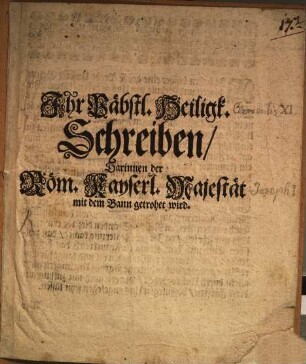 173
Ihr Päbstl. Heiligk. Clementis XI.
Schreiben/
Darinnen der
Röm. Kayserl. Majestät Josephi I.
mit dem Bann getrohet wird.